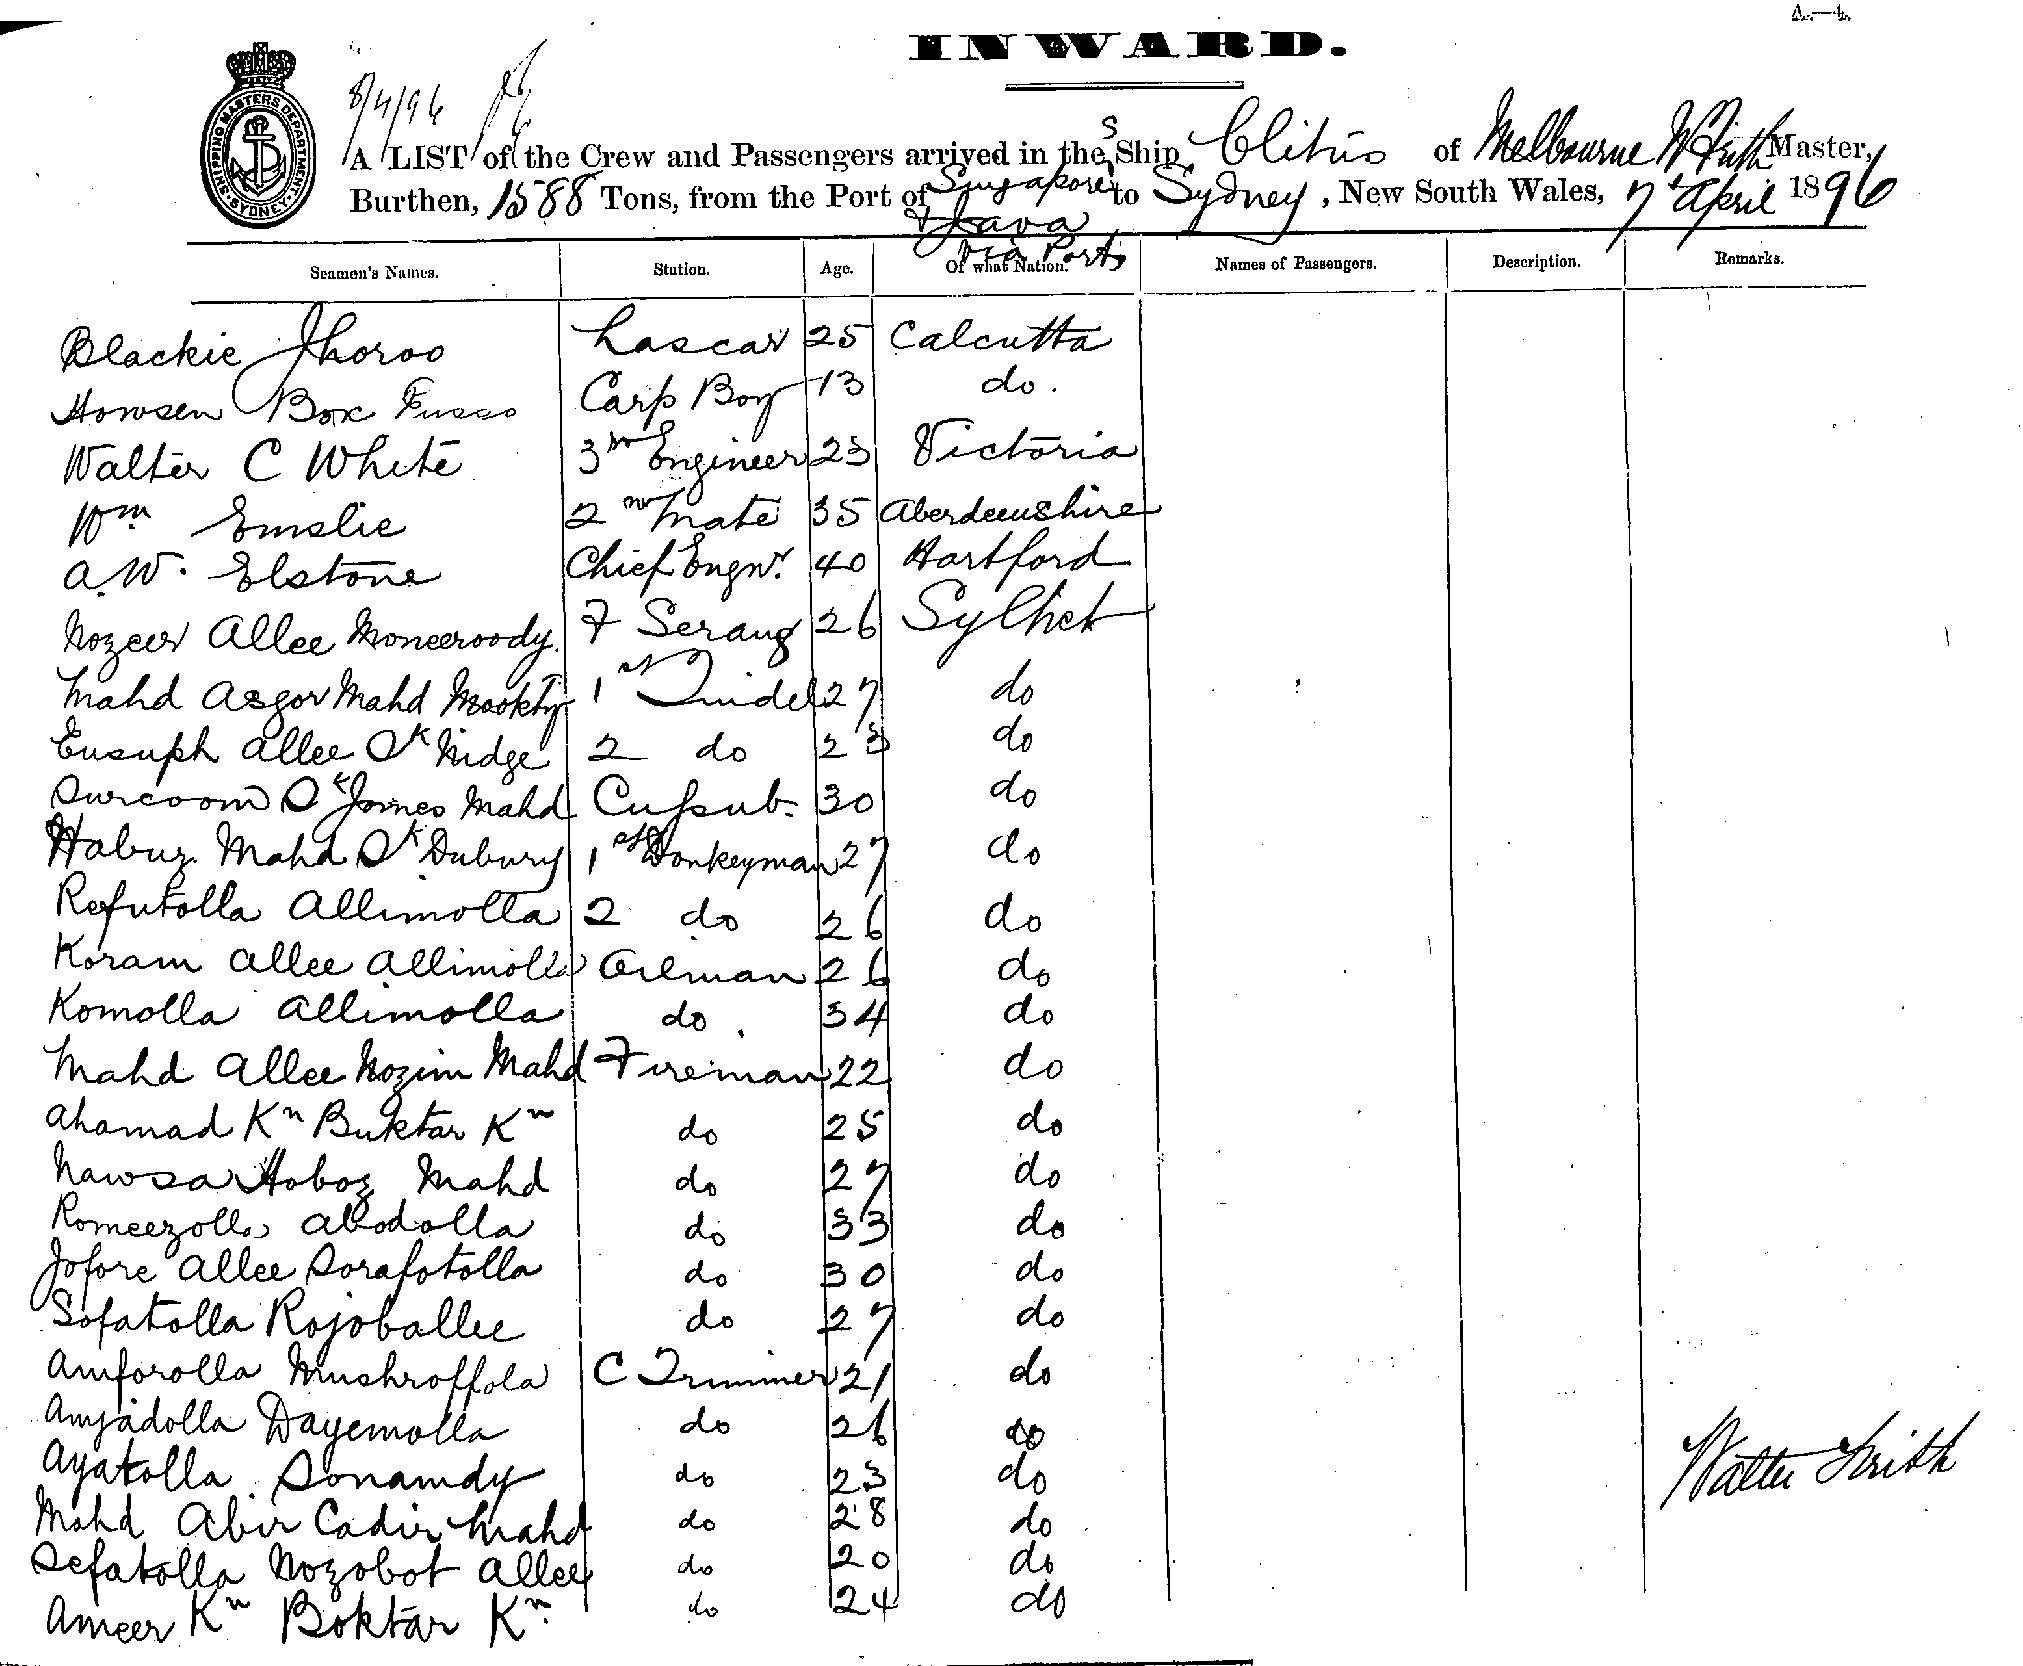 A.—4.
INWARD.
8/4/96
SHIPPING MASTERS DEPARTMENT SYDNEY
A LIST of the Crew and Passengers arrived in the S Ship Clitus of Melbourne W Frith Master,
Burthen, 1588 Tons, from the Port of Singapore to Sydney, New South Wales, 7th April 1896
& Java
via Ports
Seamen's Names. Station. Age. Of what Nation. Names of Passengers. Description. Remarks.
Blackie Jhoroo Lascar 25 Calcutta
Howsen Box Carp Boy 13 do.
Walter C White 3rd Engineer 23 Victoria
Wm Emslie 2nd Mate 35 Aberdeenshire
A.W. Elstone Chief Engnr. 40 Hartford
Nozeer Allee Moneeroody F Serang 26 Sylhet
Mahd Asgor Mahd Mookty 1st Tindel 27 do
Eusuph Allee Sk Nidge 2 do 23 do
Surcoom Sk Jomes Mahd Cussub. 30 do
Habuz Mahd Sk Dubury 1st Donkeyman 27 do
Refutolla Allimolla 2 do 26 do
Koram Allee Allimolla Oilman 26 do
Komolla Allimolla do 34 do
Mahd Allee Nozim Mahd Fireman 22 do
Ahamad Kn Buktar Kn do 25 do
Nawsa Hoboz Mahd do 27 do
Romeezolla Abodolla do 33 do
Jofore Allee Sorafotolla do 30 do
Sofatolla Rojoballee do 27 do
Amforolla Mushroffola C Trimmer 21 do
Amjadolla Dayemolla do 26 do
Ayatolla Sonamdy do 23 do
Walter Frith
Mahd Abir Cadir Mahd do 28 do
Sefatolla Nozobot Allee do 20 do
Ameer Kn Boktar Kn do 24 do